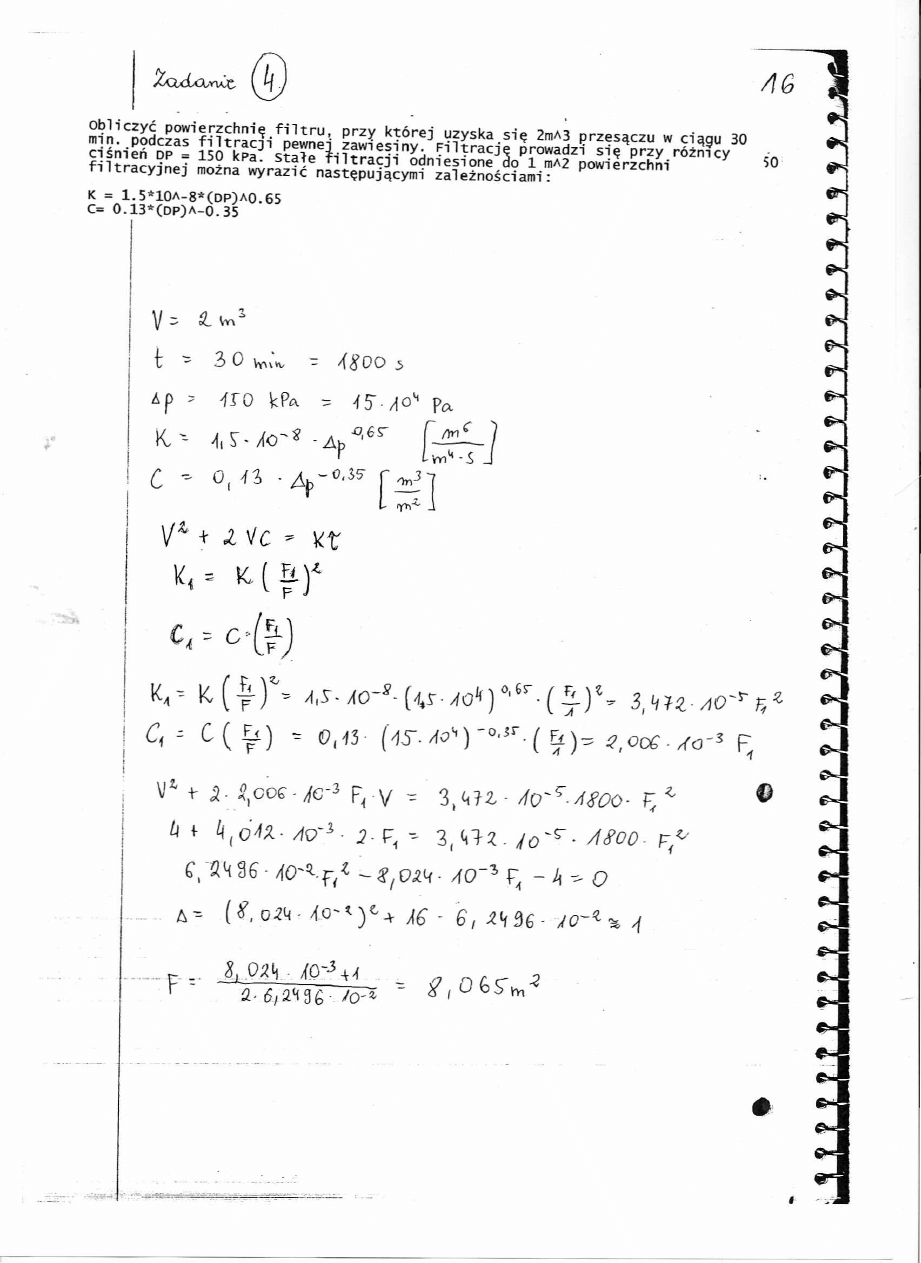 Zadanie 4.
16
Obliczyć powierzchnię filtru, przy której uzyska się 2m^3 przesączu w ciągu 30
min. podczas filtracji pewnej zawiesiny. Filtrację prowadzi się przy różnicy
ciśnień DP = 150 kPa. Stałe filtracji odniesione do 1 m^2 powierzchni
50
filtracyjnej można wyrazić następującymi zależnościami:
K = 1.5*10^-8*(DP)^0.65
C= 0.13*(DP)^-0.35
V = 2 m³
t = 30 min = 1800 s
Δp = 150 kPa = 15·10⁴ Pa
K = 1,5·10⁻⁸ · Δp^0,65 [m⁶/m⁴·s]
C = 0,13 · Δp^-0,35 [m³/m²]
V² + 2VC = Kτ
K₁ = K (F₁/F)²
C₁ = C·(F₁/F)
K₁ = K (F₁/F)² = 1,5·10⁻⁸·(1,5·10⁴)^0,65 · (F₁/1)² = 3,472·10⁻⁵ F₁²
C₁ = C (F₁/F) = 0,13· (15·10⁴)^-0,35 · (F₁/1) = 2,006·10⁻³ F₁
V² + 2·2,006·10⁻³ F₁·V = 3,472·10⁻⁵·1800· F₁²
4 + 4,012·10⁻³·2·F₁ = 3,472·10⁻⁵·1800·F₁²
6,2496·10⁻²·F₁² − 8,024·10⁻³ F₁ − 4 = 0
Δ = (8,024·10⁻²)² + 16 · 6,2496·10⁻² ≈ 1
F = (8,024·10⁻³+1)/(2·6,2496·10⁻²) = 8,065m²